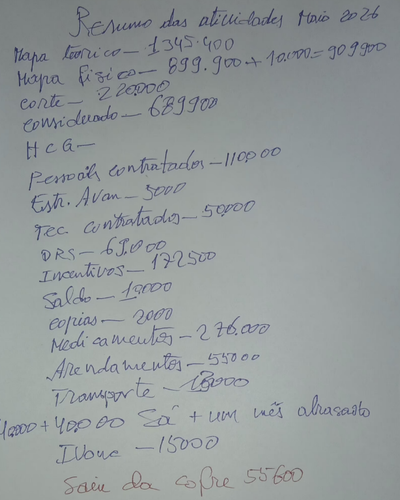 Resumo das atividades Maio 2026
Mapa teorico — 1345.400
Mapa fisico — 899.900 + 10.000 = 909900
corte — 220.000
considuado — 689900
H C G —
Pessoais contratados — 110.000
Estr. Avan — 5000
Tec. contratados — 50.000
DRS — 69.000
Incentivos — 172500
Saldo — 10.000
copias — 2000
Medicamentos — 276.000
Arendamentos — 55000
Transporte —
+ 40.000 Sá + um mês atrasado
Ivone — 15000
Saiu da cofre 55600